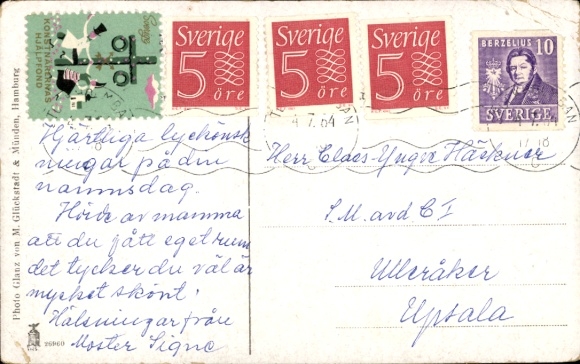 Sverige
KONSTNÄRERNAS
HJÄLPFOND
Sverige
5
öre
Sverige
5
öre
Sverige
5
öre
BERZELIUS 10
SVERIGE
4.7.64
17-18
Hjärtliga lyckönsk
ningar på din
namnsdag.
Hörde av mamma
att du fått eget rum
det tycker du väl är
mycket skönt.
Hälsningar från
Moster Signe
Herr Claes-Yngve Häckner
S.M. avd C I
Ulleråker
Upsala
Photo Glanz von M. Glückstadt & Münden, Hamburg
26960